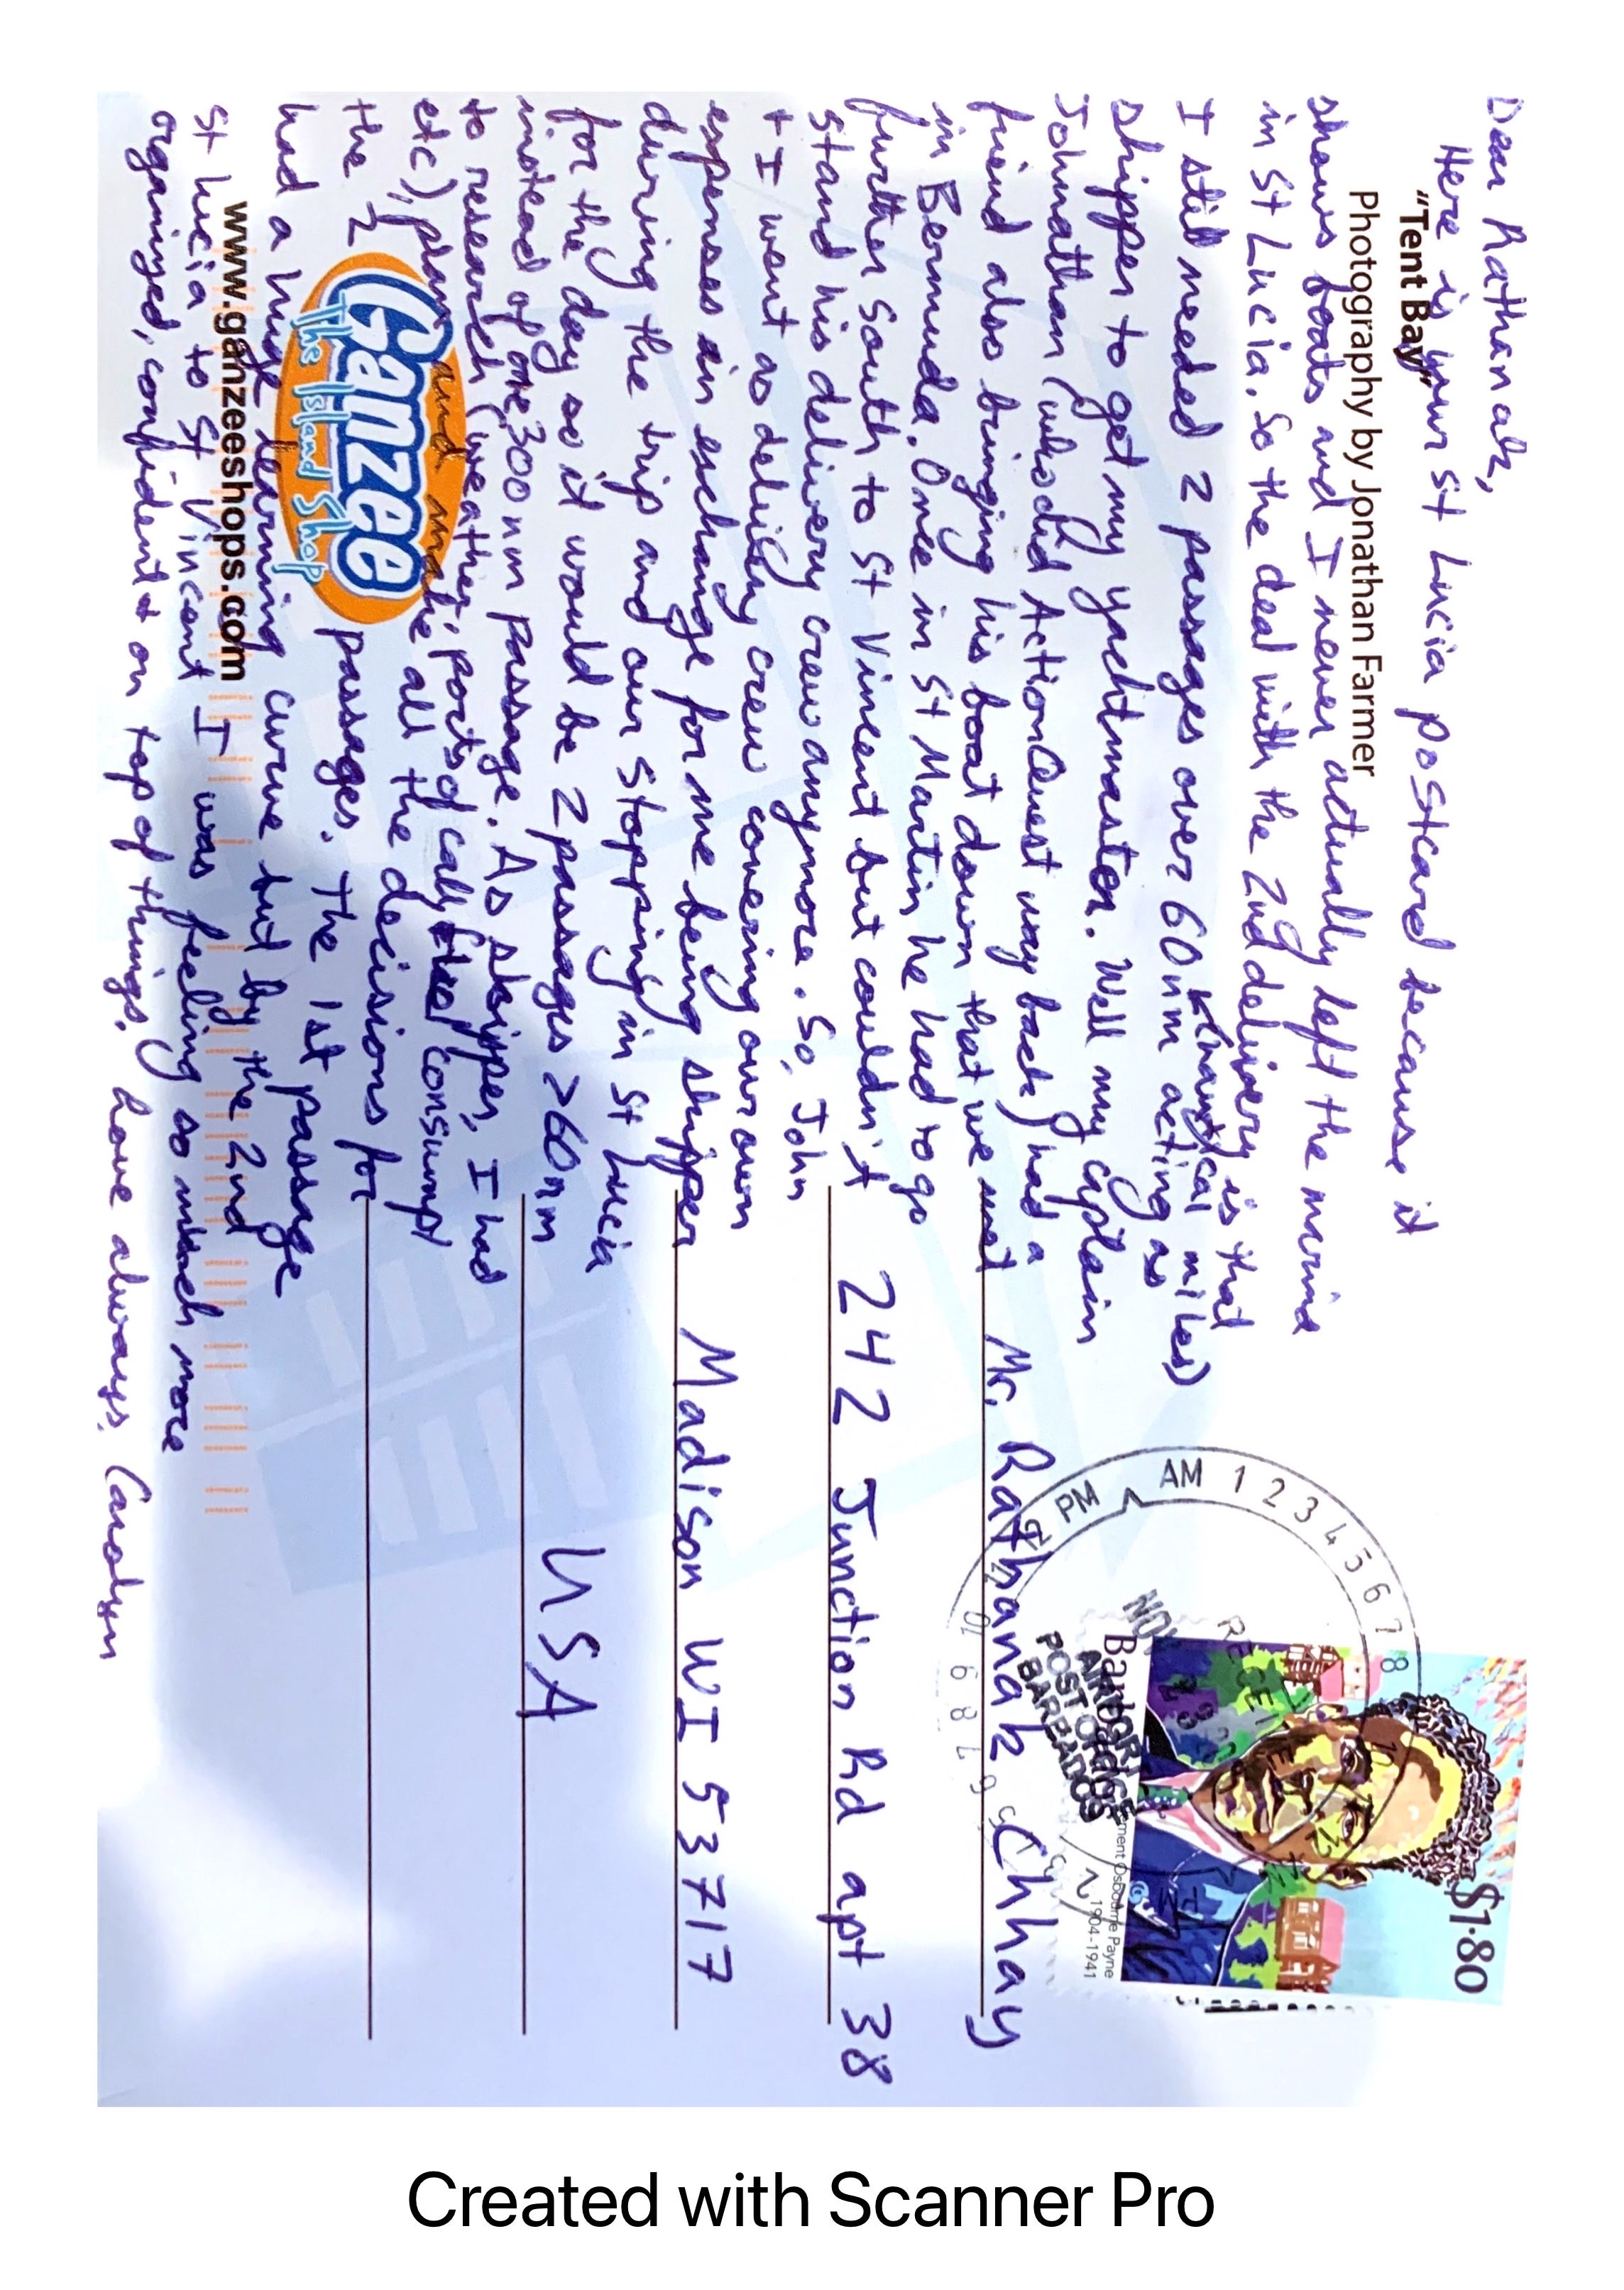 Dear Rathanak,
Here is your St Lucia postcard because it
"Tent Bay"
Photography by Jonathan Farmer
shows boats and I never actually left the marina
in St Lucia. So the deal with the 2nd delivery is that
I still needed 2 passages over 60nm (nautical miles) acting as
skipper to get my yachtmaster. Well my captain
Johnathan (who did ActionQuest way back) had a
friend also bringing his boat down that we met
in Bermuda. Once in St Martin he had to go
further south to St Vincent but couldn't
stand his delivery crew anymore. So, John
+ I went as delivery crew covering our own
expenses in exchange for me being skipper
during the trip and our stopping in St Lucia
for the day so it would be 2 passages >60nm
instead of one 300nm passage. As skipper, I had
to research (weather, ports of call, fuel consumpt
etc), plan and make all the decisions for
the 2 passages. The 1st passage
had a huge learning curve but by the 2nd
St Lucia to St Vincent I was feeling so much more
organized, confident & on top of things. Love always, Carolyn
Ganzee
The Island Shop
www.ganzeeshops.com
Mr. Rathanak Chhay
242 Junction Rd apt 38
Madison WI 53717
USA
$1.80
Barbados
Osbourne Payne
1904-1941
AM 1 2 3 4 5 6 7 8
PM
AIRPORT
POST OFFICE
BARBADOS
NOV
Created with Scanner Pro